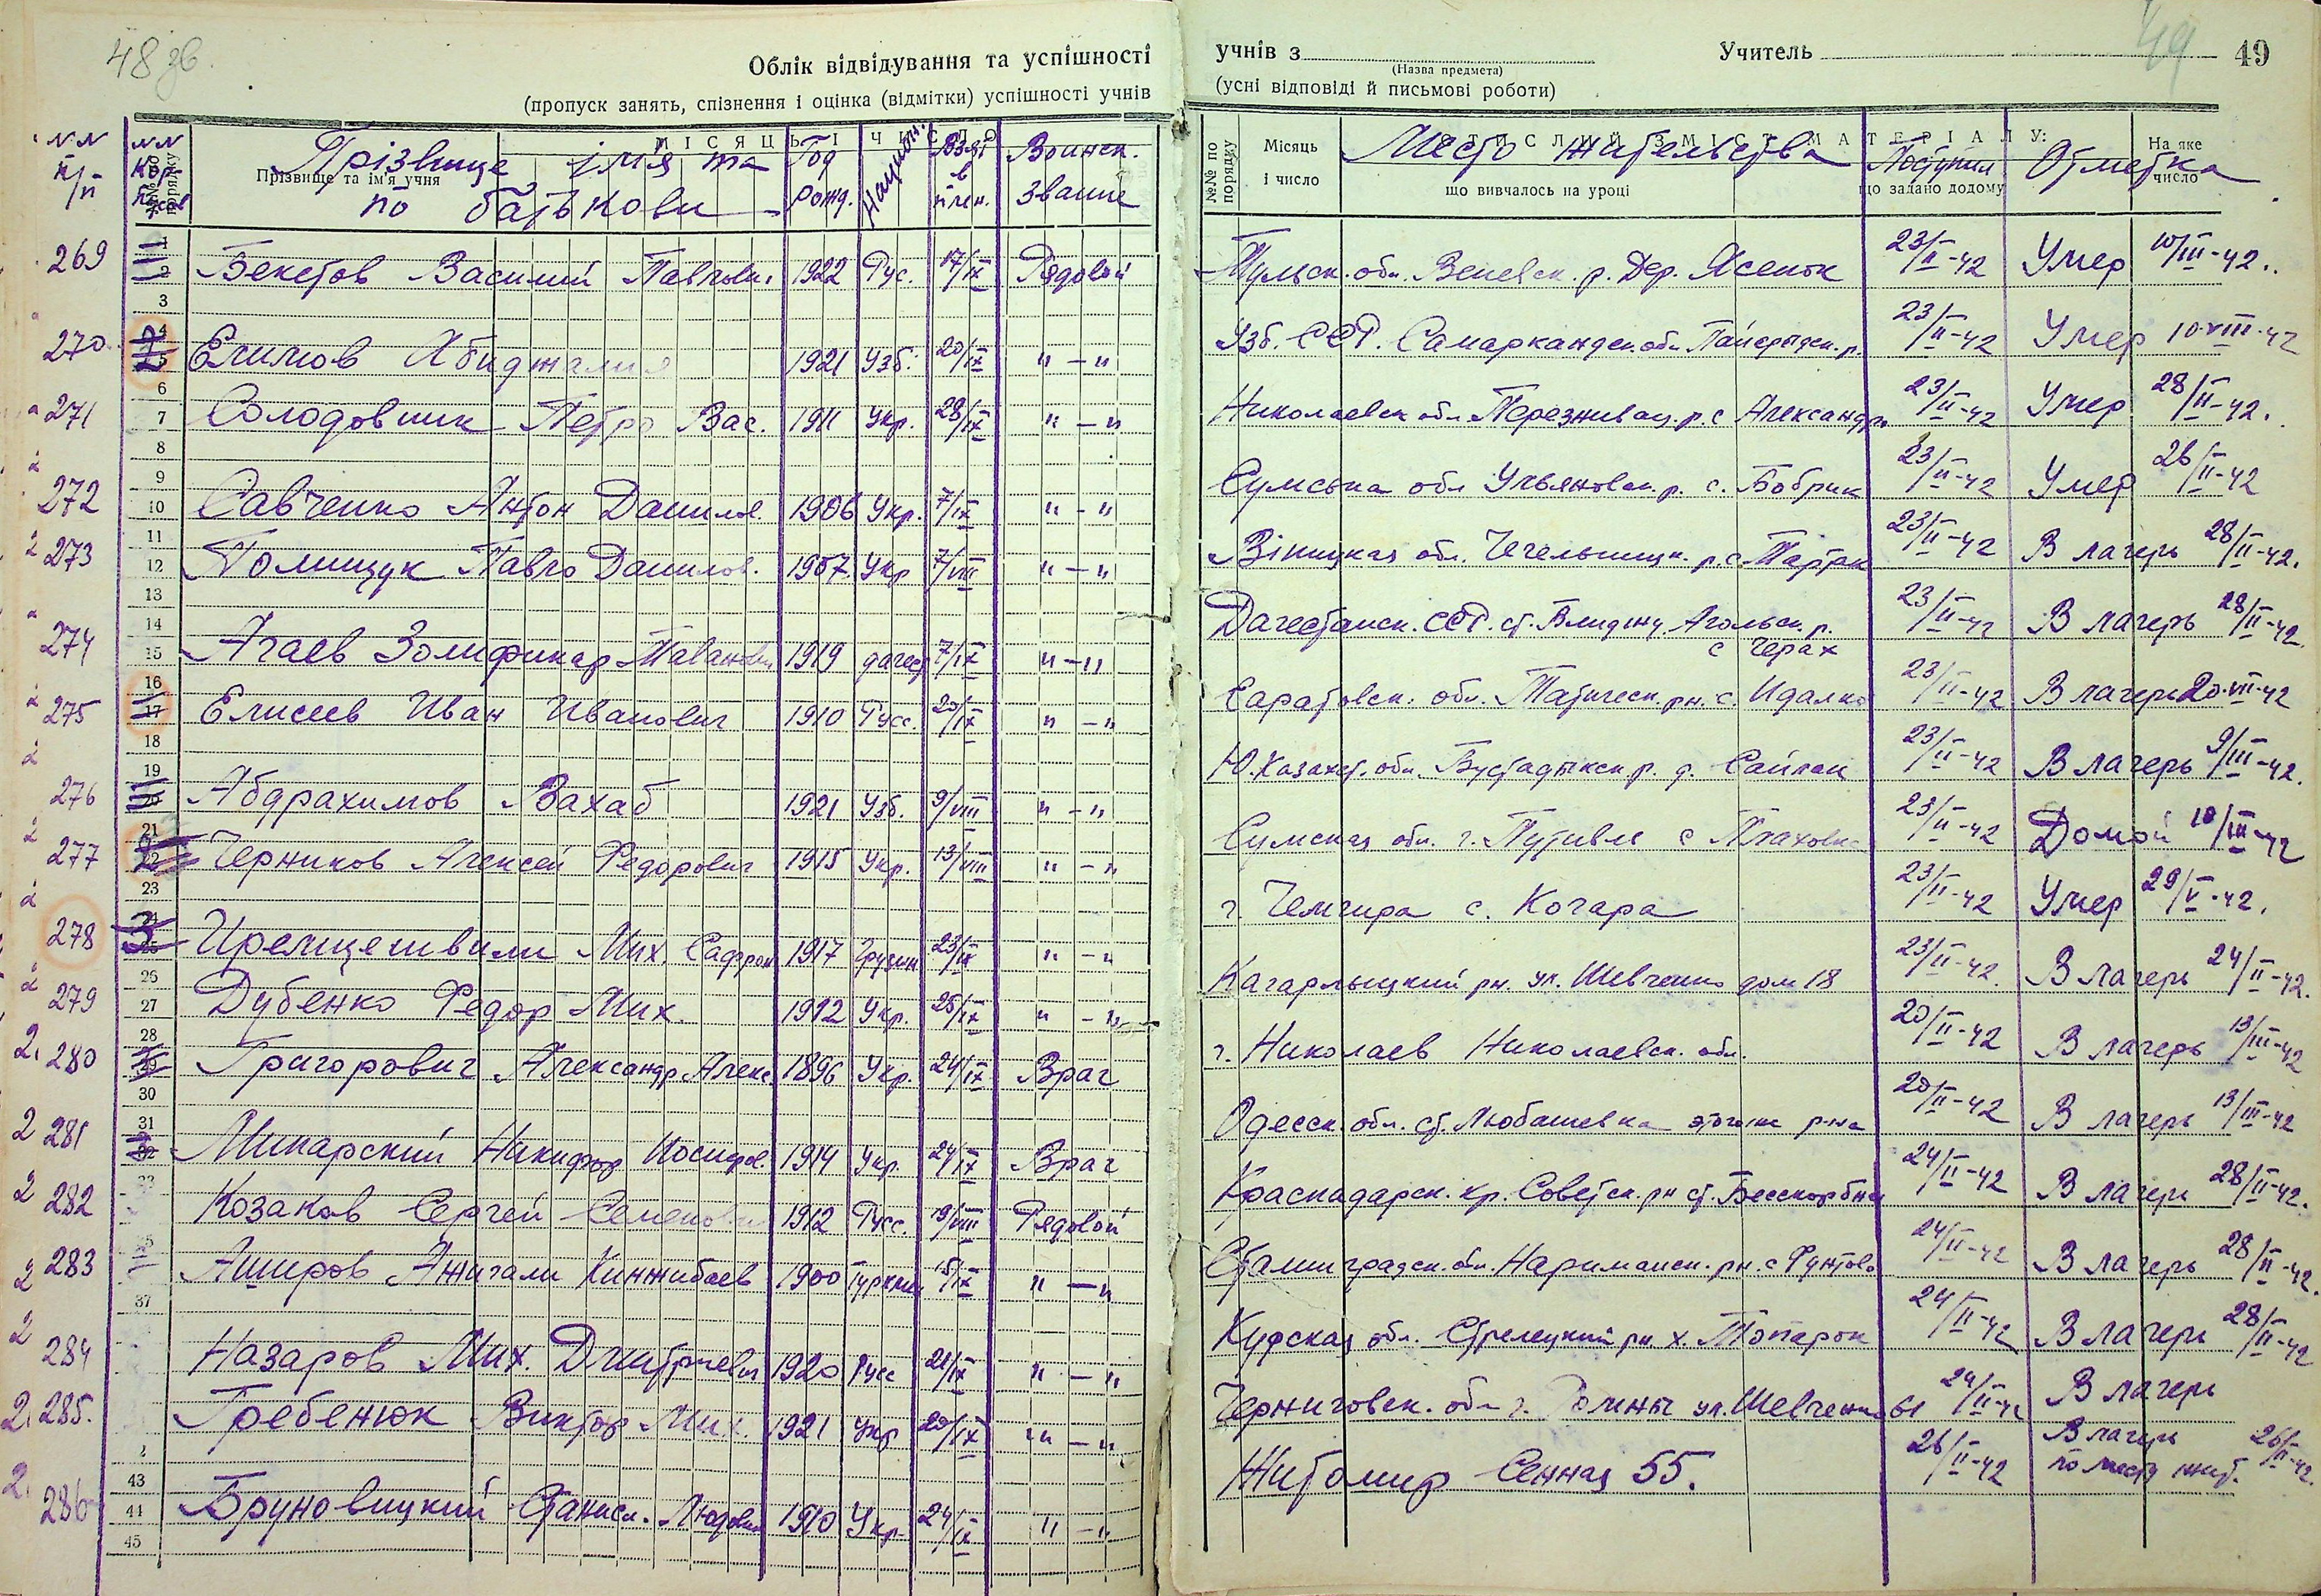 48 зв.
Облік відвідування та успішності
(пропуск занять, спізнення і оцінка (відмітки) успішності учнів
№№ п/п
№№ по порядку
МІСЯЦЬ І ЧИСЛО
Прізвище та ім'я учня
Прізвище імя та по батькови
Год рожд.
Национ.
Взят в плен.
Воинск. звание
269 Бекетов Василий Павлович 1922 Рус. 17/IX Рядовой
270. 2 Ечимов Абиджалил 1921 Узб. 20/IX "–"
271 Солодовник Петро Вас. 1911 Укр. 28/IX "–"
272 Савченко Антон Данилов. 1906 Укр. 7/IX "–"
273 Полищук Павло Данилов. 1907. Укр 7/VIII "–"
274 Агаев Золификар 1919 дагест 7/IX "–"
275 Елисеев Иван Иванович 1910 Русс. 20/IX "–"
276 Абдрахимов Вахаб 1921 Узб. 9/VIII "–"
277 Черников Алексей Федорович 1915 Укр. 13/VIII "–"
278 3 Мих. Сафрон 1917 Грузин 23/IX "–"
279 Дубенко Федор Мих. 1912 Укр. 25/IX "–"
280 Григорович Александр Алекс. 1896 Укр. 24/IX Врач
281 Никифор Иосифов. 1914 Укр. 24/IX Врач
282 Козаков Сергей Семенович 1912 Русс. 19/VIII Рядовой
283 Аширов Ажигали Кинжибаев 1900 Туркмен 15/IX "–"
284 Назаров Мих. Дмитриевич 1920 Русс 21/IX "–"
285. Гребенюк Виктор Мих. 1921 Укр 20/IX "–"
286 Бруновицкий Станисл. Людови 1910 Укр. 24/IX "–"
учнів з
(Назва предмета)
Учитель
49
49
(усні відповіді й письмові роботи)
№№ по порядку
Місяць і число
СТИСЛИЙ ЗМІСТ МАТЕРІАЛУ:
що вивчалось на уроці
що задано додому
На яке число
Место жительства
Поступил
Отметка
Тульск. обл. Веневск. р. Дер. Ясенок 23/II-42 Умер 10/III-42.
Узб. ССР. Самаркандск. обл. 23/II-42 Умер 10-VIII-42
Николаевск обл. р. с Александр 23/II-42 Умер 28/II-42.
Сумська обл Ульяновск. р. с. Бобрик 23/II-42 Умер 26/II-42
Вініцкая обл. Чечельницк. р. с. Тартак 23/II-42 В лагерь 28/II-42.
Дагестанск. ССР. ст. Агольск. р. с Черах 23/II-42 В лагерь 28/II-42
Саратовск. обл. рн. с. Идалка 23/II-42 В лагерь 20-VII-42
Ю. Казахст. обл. р. д. Сайлак 23/II-42 В лагерь 9/III-42.
Сумская обл. г. Путивль с 23/II-42 Домой 10/III-42
г. с. Кочара 23/II-42 Умер 29/V-42.
Кагарлыцкий рн. ул. Шевченко дом 18 23/II-42. В лагерь 24/II-42.
г. Николаев Николаевск. обл. 20/II-42 В лагерь 13/III-42
Одесск. обл. ст. Любашевка этого же р-на 20/II-42 В лагерь 13/III-42
Краснадарск. кр. Советск. рн ст. Бесскорбная 24/II-42 В лагерь 28/II-42.
Сталинградск. обл. Наримански. рн. с Фунтово 24/II-42 В лагерь 28/II-42.
обл. Стрелецкий рн. х. 24/II-42 В лагерь 28/II-42
Черниговск. обл г. Ромны ул. Шевченко 61 24/II-42 В лагерь
Житомир Сенная 55. 26/II-42 В лагерь по месту жит. 26/II-42